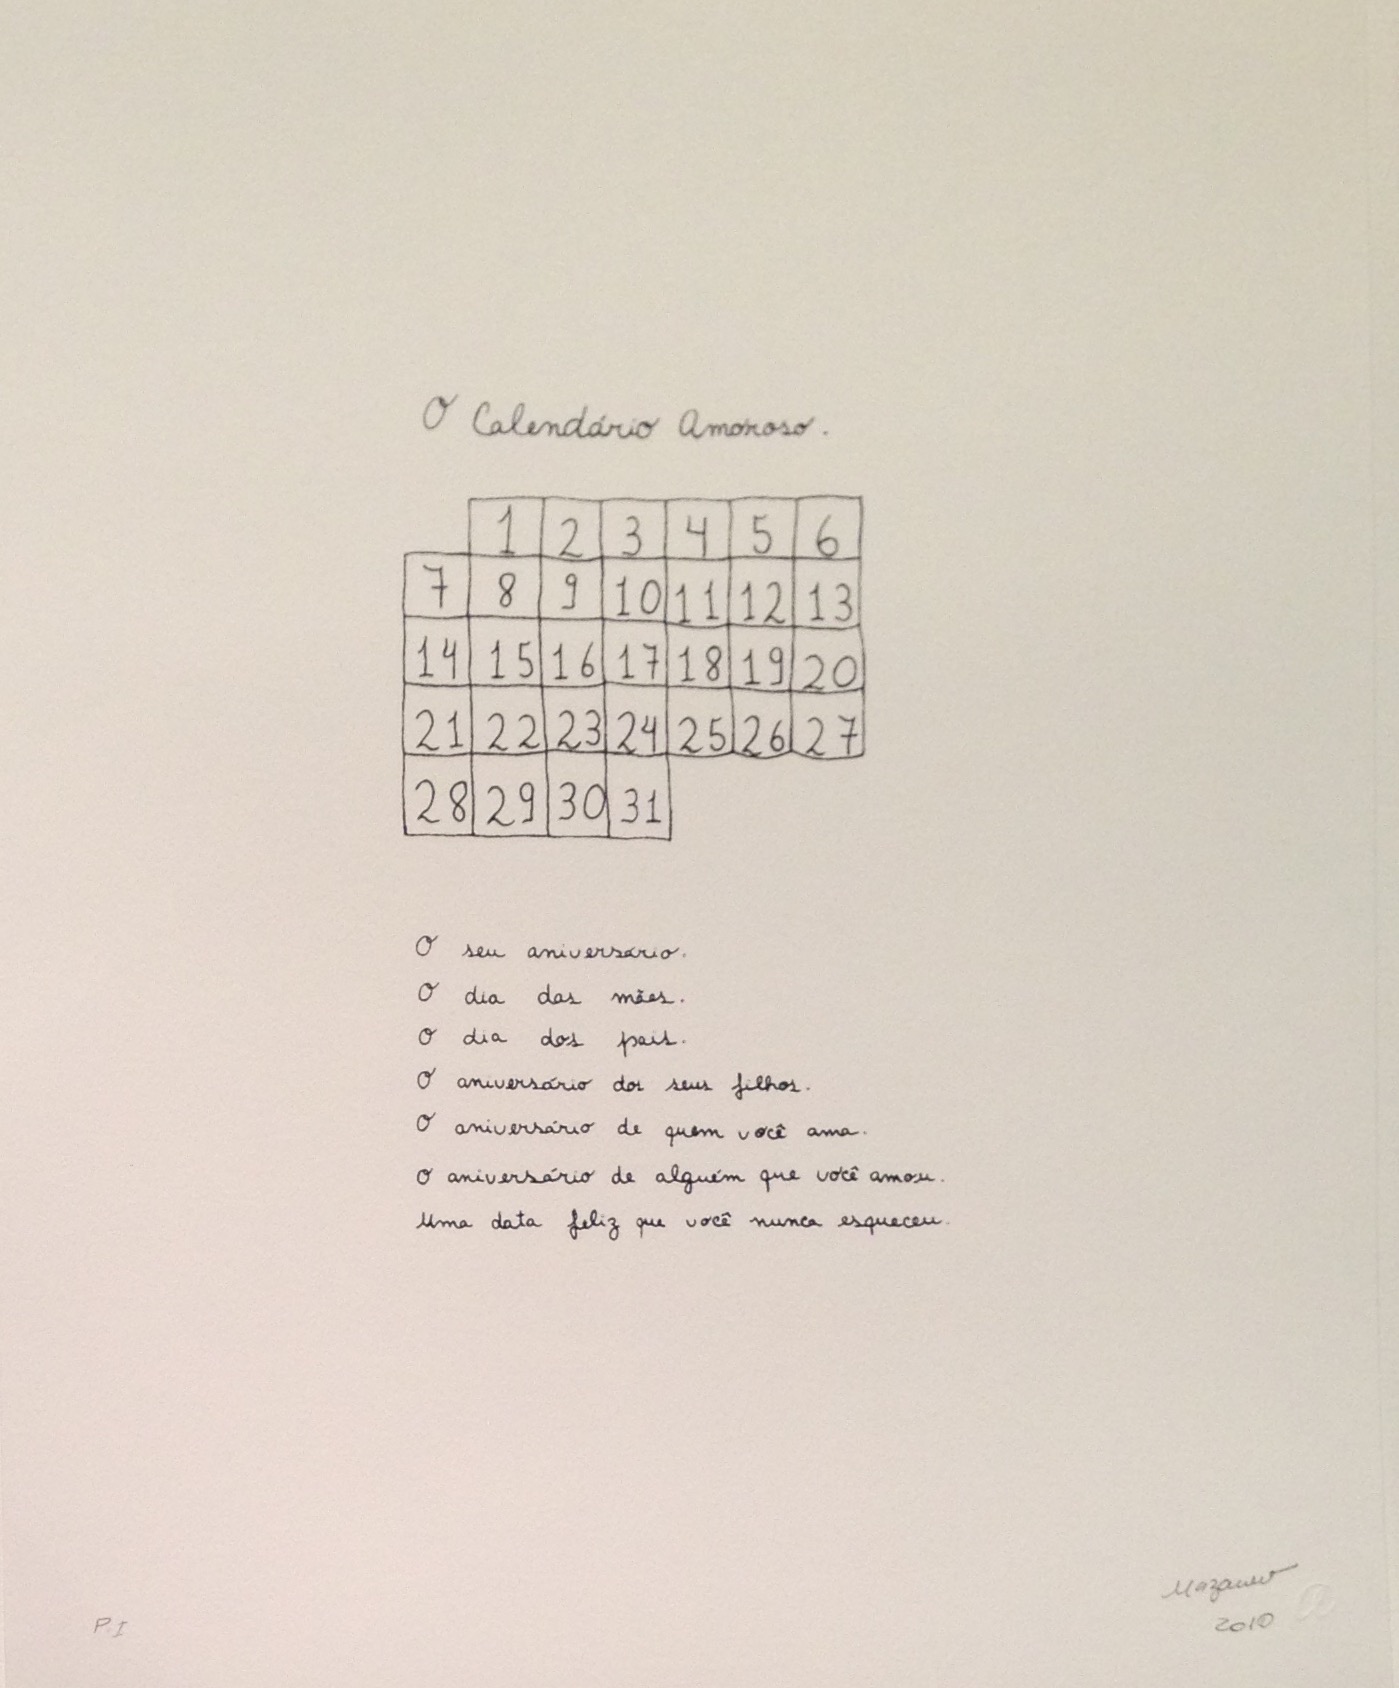 O Calendário Amoroso.
1 2 3 4 5 6
7 8 9 10 11 12 13
14 15 16 17 18 19 20
21 22 23 24 25 26 27
28 29 30 31
O seu aniversário.
O dia das mães.
O dia dos pais.
O aniversário dos seus filhos.
O aniversário de quem você ama.
O aniversário de alguém que você amou.
Uma data feliz que você nunca esqueceu.
P.I
2010